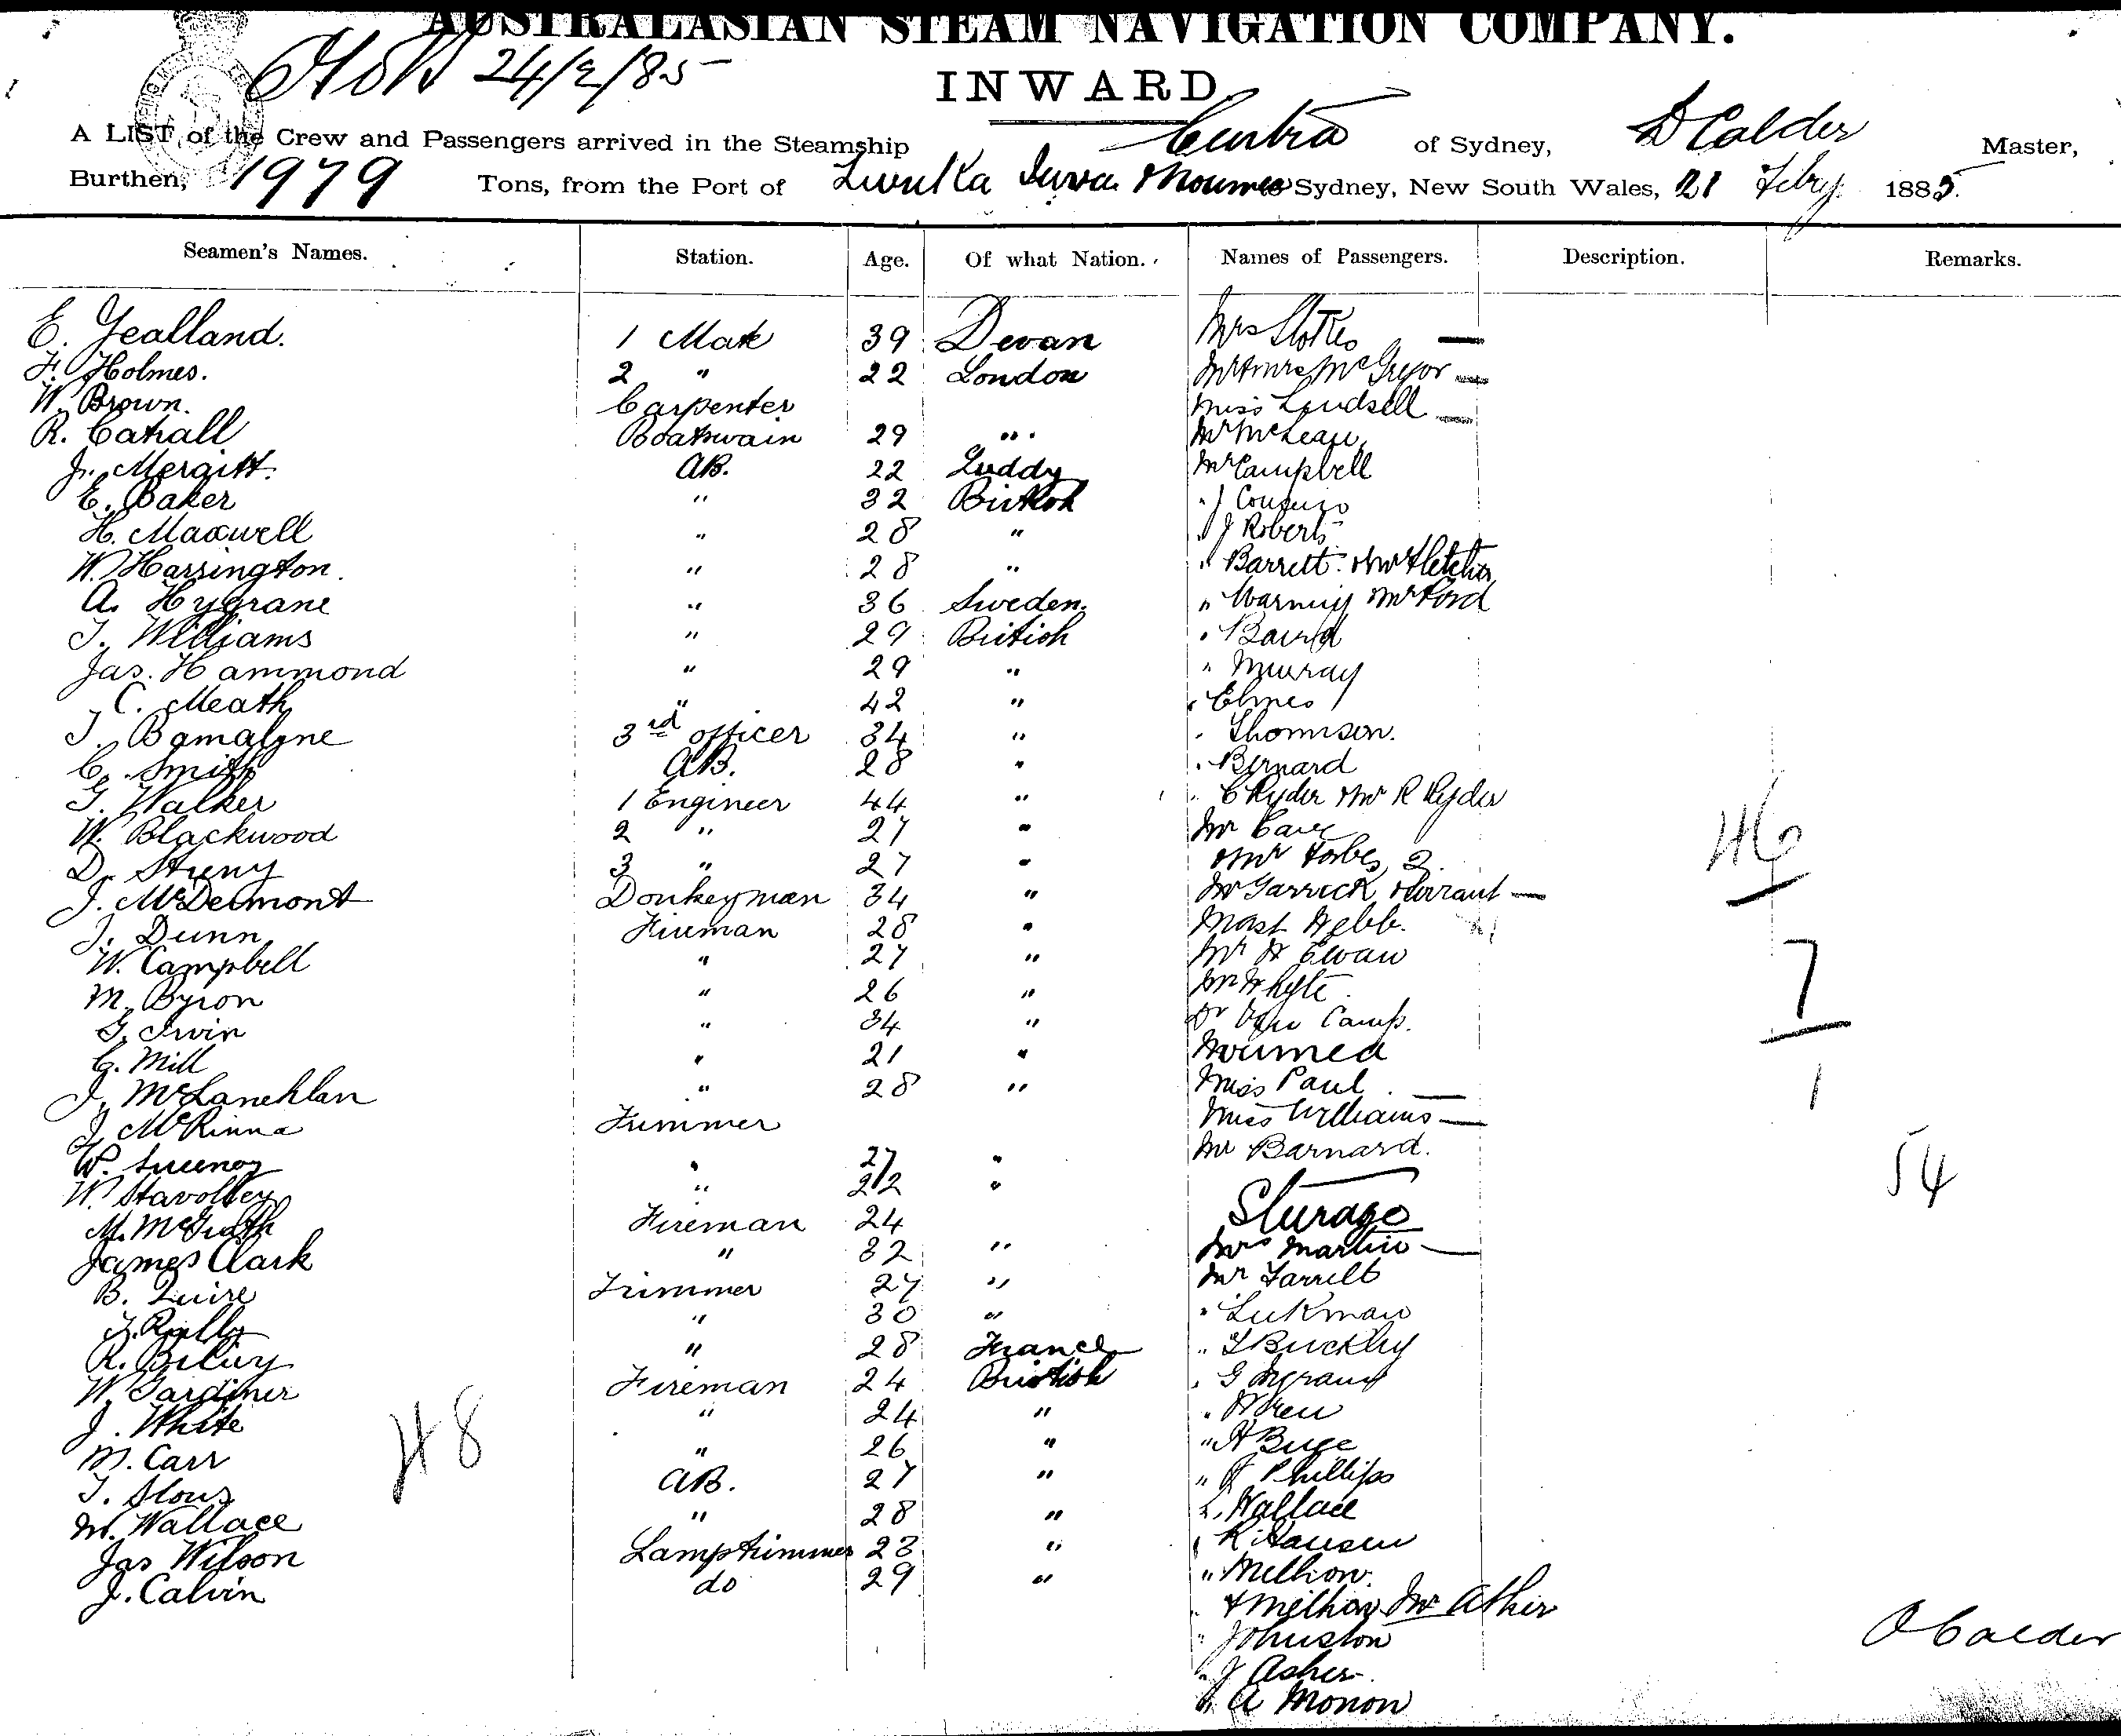 AUSTRALASIAN STEAM NAVIGATION COMPANY.
24/2/85
INWARD
A LIST of the Crew and Passengers arrived in the Steamship Cintra of Sydney, D Calder Master,
Burthen, 1979 Tons, from the Port of Levuka Suva & Noumea Sydney, New South Wales, 21 Feby. 1885.
Seamen's Names. Station. Age. Of what Nation. Names of Passengers. Description. Remarks.
E. Yealland. 1 Mate 39 Devon Mrs Stokes —
F. Holmes. 2 " 22 London Mr & Mrs McGregor —
W. Brown. Carpenter Miss Loudsell —
R. Catrall Boatswain 29 " Mr McLean
J. Mergitt. AB. 22 Luddy Mr Campbell
E. Baker " 32 British " J Cousins
H. Maxwell " 28 " " J Roberts
W. Harrington. " 28 " " Barrett. & Mr Fletcher
A. Hygrane " 36 Sweden. " Warning Mr Ford
T. Williams " 29 British " Baird
Jas. Hammond " 29 " " Murray
C. Meath " 42 " " Elmes
J. Bamalyne 3rd officer 34 " " Thomson.
C. Smith AB. 28 " " Bernard
G. Walker 1 Engineer 44 " " C Ryder & Mr R Ryder
W. Blackwood 2 " 27 " Mr Cave
D. 3 " 27 " & Mr Forbes 2.
J. McDermont Donkeyman 34 " Mr Garrick —
J. Dunn Fireman 28 " Mast Webb.
W. Campbell " 27 " Mr Ewan
M. Byron " 26 " Mr Whyte.
G. Irwin " 34 " Dr Camp.
C. Mill " 21 " Noumea
J. McLanchlan " 28 " Miss Paul —
J. McKinna Trimmer Miss Williams —
W. Sweeney " 27 " Mr Barnard.
W. Stavolley " 22 "
M. McGrath Fireman 24 Steerage
James Clark " 32 " Mrs Martin —
B. Quire Trimmer 27 " Mr Farrell
J. Reilly " 30 " " Lukman
R. " 28 France " T Buckley
W. Gardiner Fireman 24 British " G Ingram
J. White " 24 " " Wren
M. Carr " 26 " " H Buge
T. AB. 27 " " J Phillips
M. Wallace " 28 " L. Wallace
Jas Wilson Lamptrimmer 23 " " K Hansen
J. Calvin do 29 " " Melhon.
" & Melhon Mr Asher
" Johnston
" J Asher
" A Monon
48
46
7
1
54
D Calder